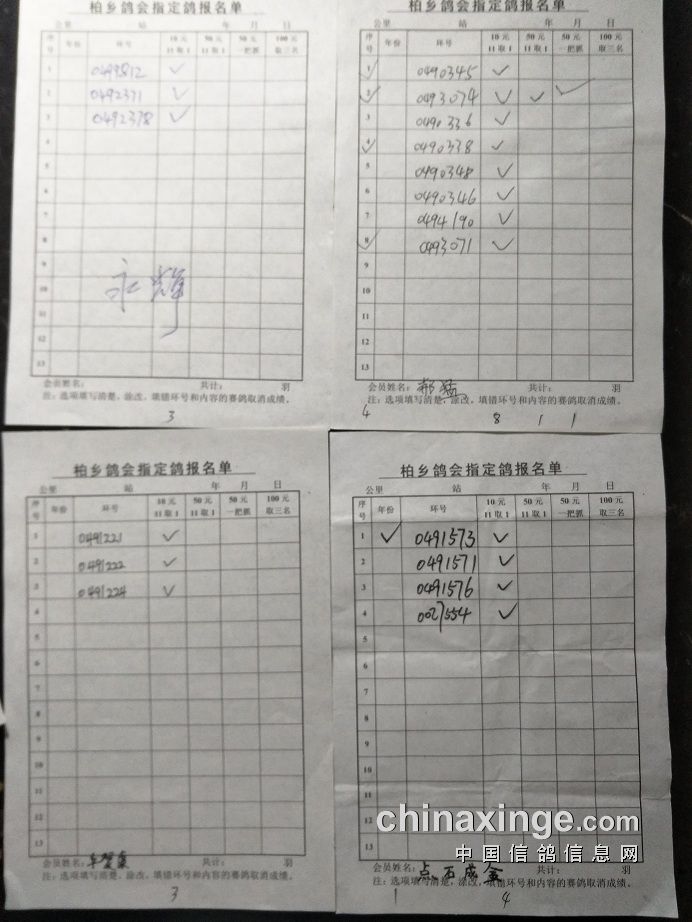 柏乡鸽会指定鸽报名单
公里 站 年 月 日
序号 年份 环号 10元11取1 50元11取1 50元一把抓 100元取三名
1 0499812 ✓
2 0492371 ✓
3 0492378 ✓
4
5
6
7
8
9
10
11
12
13
永辉
会员姓名: 共计: 羽
注:选项填写清楚,涂改,填错环号和内容的赛鸽取消成绩。
3
柏乡鸽会指定鸽报名单
公里 站 年 月 日
序号 年份 环号 10元11取1 50元11取1 50元一把抓 100元取三名
1 ✓ 0490345 ✓
2 ✓ 0493074 ✓ ✓ ✓
3 0490336 ✓
4 ✓ 0490338 ✓
5 0490348 ✓
6 0490346 ✓
7 0494190 ✓
8 ✓ 0493071 ✓
9
10
11
12
13
会员姓名: 郝猛 共计: 羽
注:选项填写清楚,涂改,填错环号和内容的赛鸽取消成绩。
4 8 1 1
柏乡鸽会指定鸽报名单
公里 站 年 月 日
序号 年份 环号 10元11取1 50元11取1 50元一把抓 100元取三名
1 0491221 ✓
2 0491222 ✓
3 0491224 ✓
4
5
6
7
8
9
10
11
12
13
会员姓名: 共计: 羽
注:选项填写清楚,涂改,填错环号和内容的赛鸽取消成绩。
3
柏乡鸽会指定鸽报名单
公里 站 年 月 日
序号 年份 环号 10元11取1 50元11取1 50元一把抓 100元取三名
1 ✓ 0491573 ✓
2 0491571 ✓
3 0491576 ✓
4 0027554 ✓
5
6
7
8
9
10
11
12
13
会员姓名: 点石成金 共计: 羽
注:选项填写清楚,涂改,填错环号和内容的赛鸽取消成绩。
1 4
chinaxinge.com
中国信鸽信息网